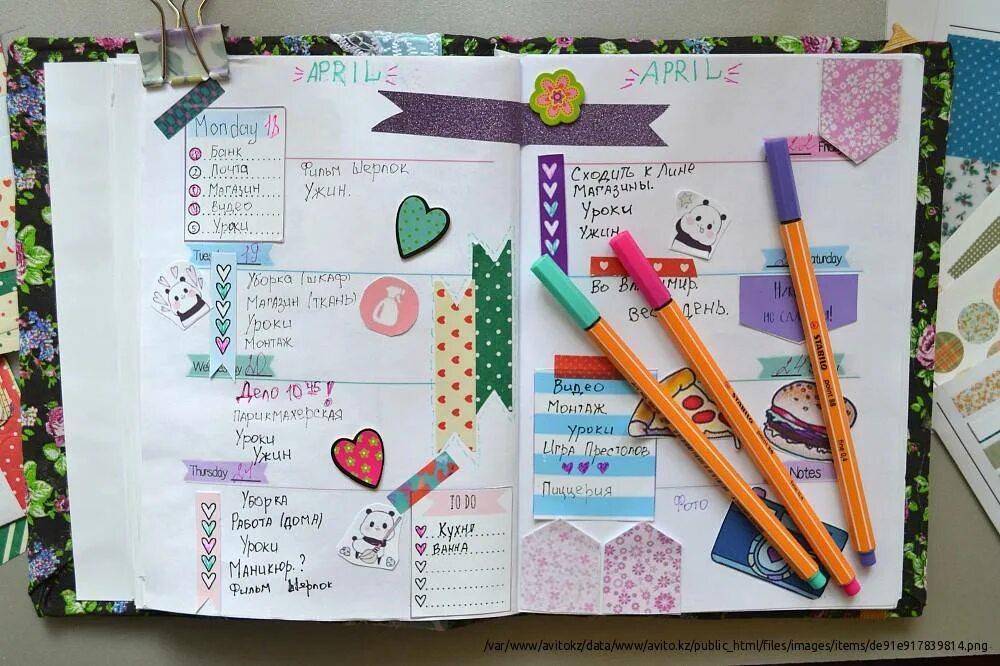 APRIL
Monday 18
1 Банк
2 Почта
3 Магазин
4 Видео
5 Уроки
Фильм Шерлок
Ужин.
Tues 19
Уборка (шкаф)
Магазин (ткань)
Уроки
Монтаж
20
Дело 10 45!
Парикмахерская
Уроки
Ужин
Thursday 21
Уборка
Работа (дома)
Уроки
Маникюр.?
Фильм Шерлок
TO DO
Кухня
Ванна
APRIL
22 Fri
Сходить к Лине
Магазины.
Уроки
Ужин
Saturday
Во Владимир.
весь день.
Видео
Монтаж
Уроки
Игра Престолов
Пиццерия
24
Notes
Фото
STABILO point 88 fine 0,4
STABILO
STABILO
/var/www/avitokz/data/www/avito.kz/public_html/files/images/items/de91e917839814.png